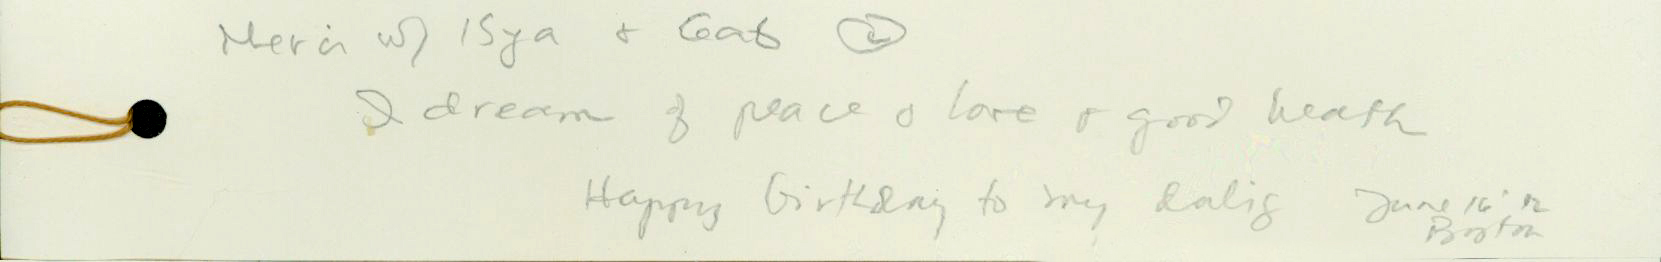 w/ Isya + Gab ②
I dream of peace & love & good heath
Happy birthday to my dalig June 16 '12
Boston